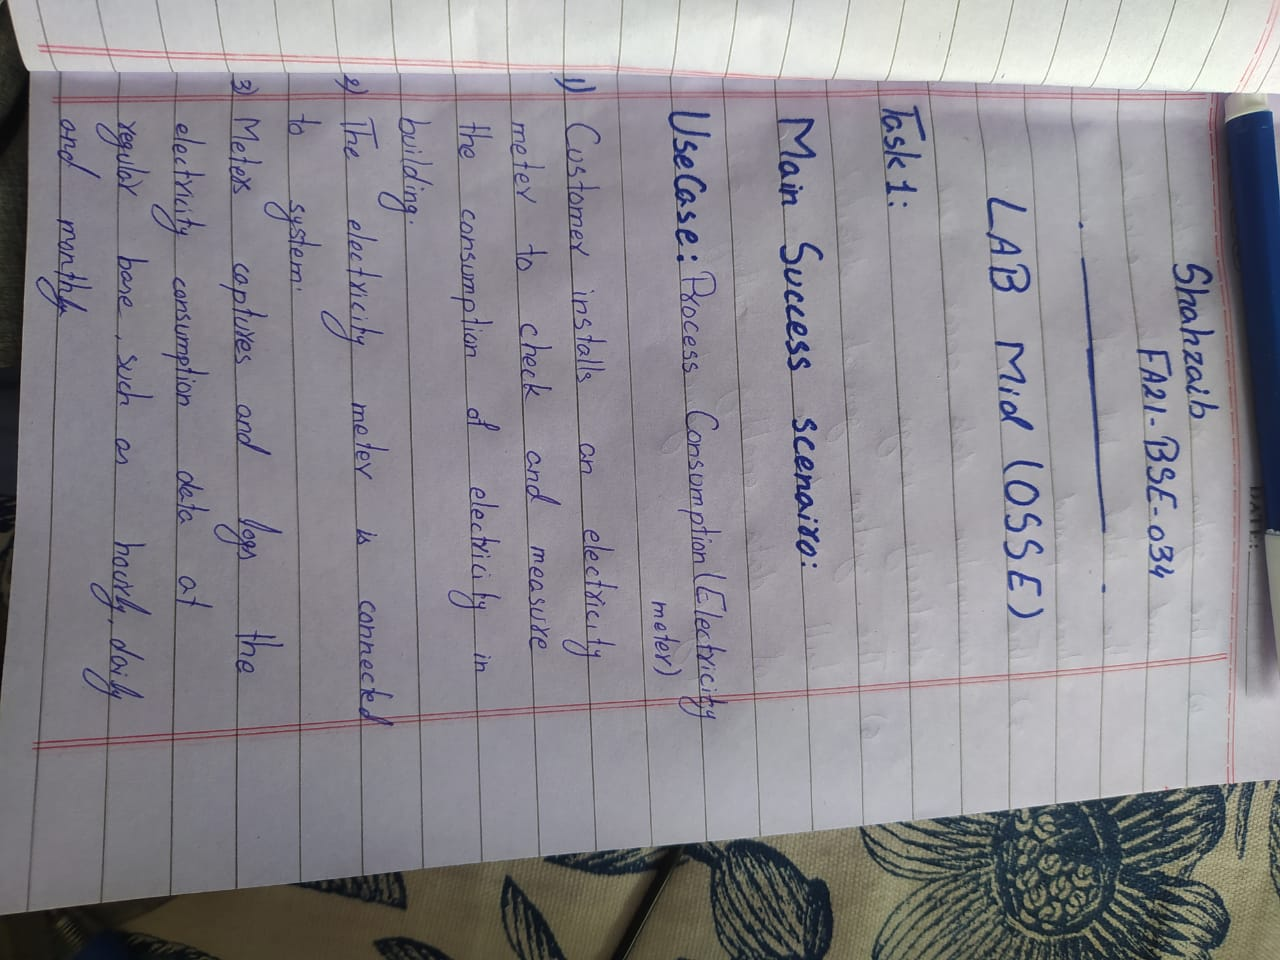 Shahzaib
FA21-BSE-034
LAB Mid (OSSE)
Task 1:
Main Success scenairo:
UseCase: Process Consumption (Electricity
meter)
1) Customer installs an electricity
meter to check and measure
the consumption of electricity in
building.
2) The electricity meter is connected
to system.
3) Meters captures and logs the
electricity consumption data at
regular base, such as hourly, daily
and monthly